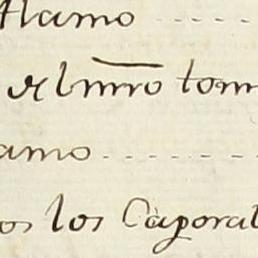 tlamo
el mro tom
amo
os los Caporal